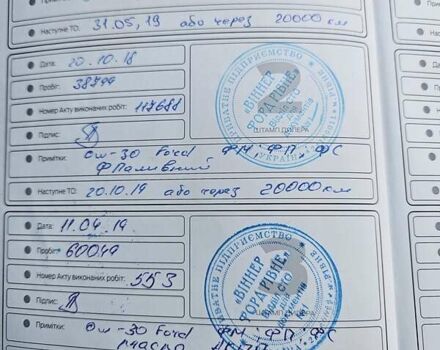 Наступне ТО: 31.05.19 або через 20000 км
Дата: 20.10.18
Пробіг: 38744
Номер Акту виконаних робіт: 117688
Підпис:
ШТАМП ДИЛЕРА
Примітки: 0w-30 Ford ФМ, ФП, ФС
Ф Паливний
Наступне ТО: 20.10.19 або через 20000 км
ПРИВАТНЕ ПІДПРИЄМСТВО
"ВІННЕР
ФОРД РІВНЕ"
СТО
УКРАЇНА
2
Дата: 11.04.19
Пробіг: 60049
Номер Акту виконаних робіт: 553
Підпис:
Примітки: 0w-30 Ford ФМ, ФП, ФС
ПРИВАТНЕ ПІДПРИЄМСТВО
"ВІННЕР
ФОРД РІВНЕ"
СТО
3